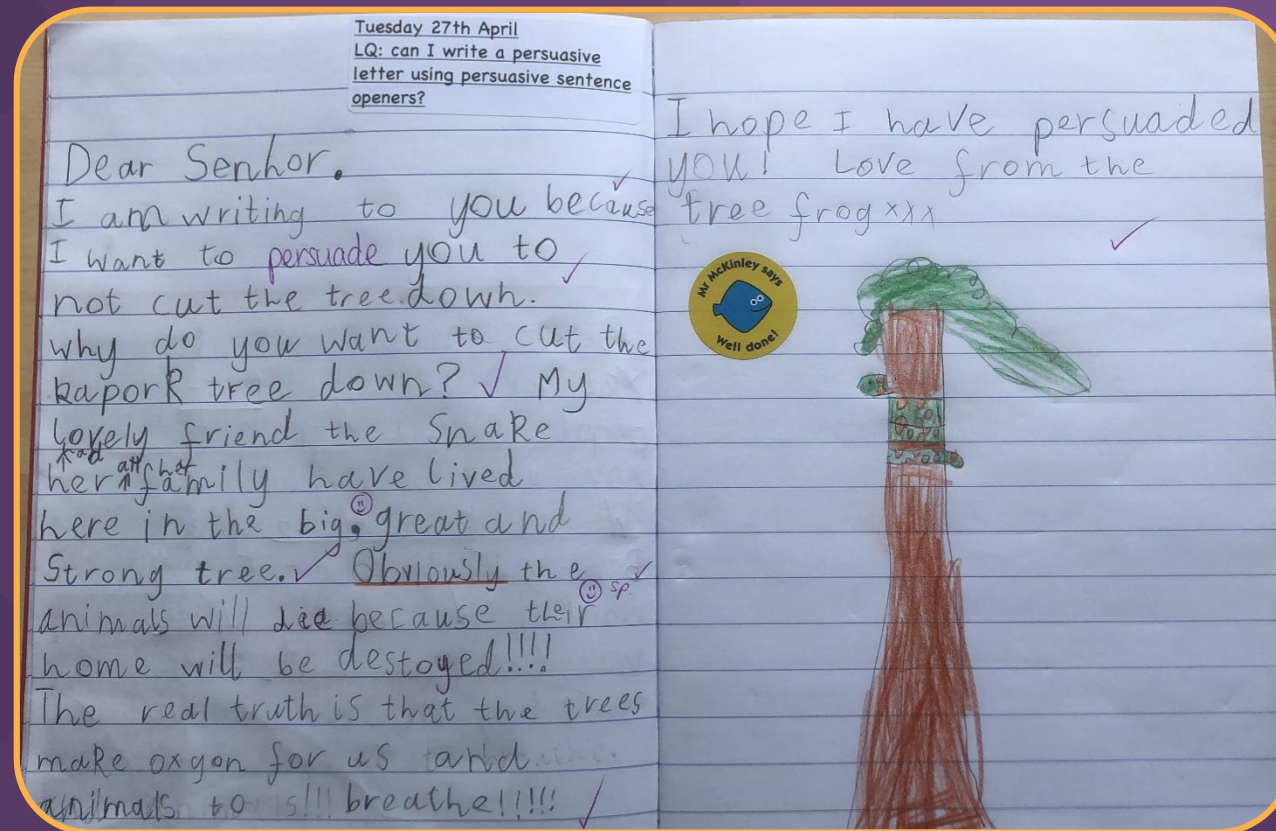 Tuesday 27th April
LQ: can I write a persuasive
letter using persuasive sentence
openers?
Dear Senhor.
I am writing to you because
I want to persuade you to
not cut the tree down.
why do you want to cut the
kapork tree down? My
lovely friend the snake
and all her
her family have lived
here in the big, great and
Strong tree. Obviously the
sp
animals will die because their
home will be destoyed!!!!
The real truth is that the trees
make oxgon for us and
animals to breathe!!!!!
I hope I have persuaded
you! Love from the
tree frog xxx
Mr McKinley says
Well done!